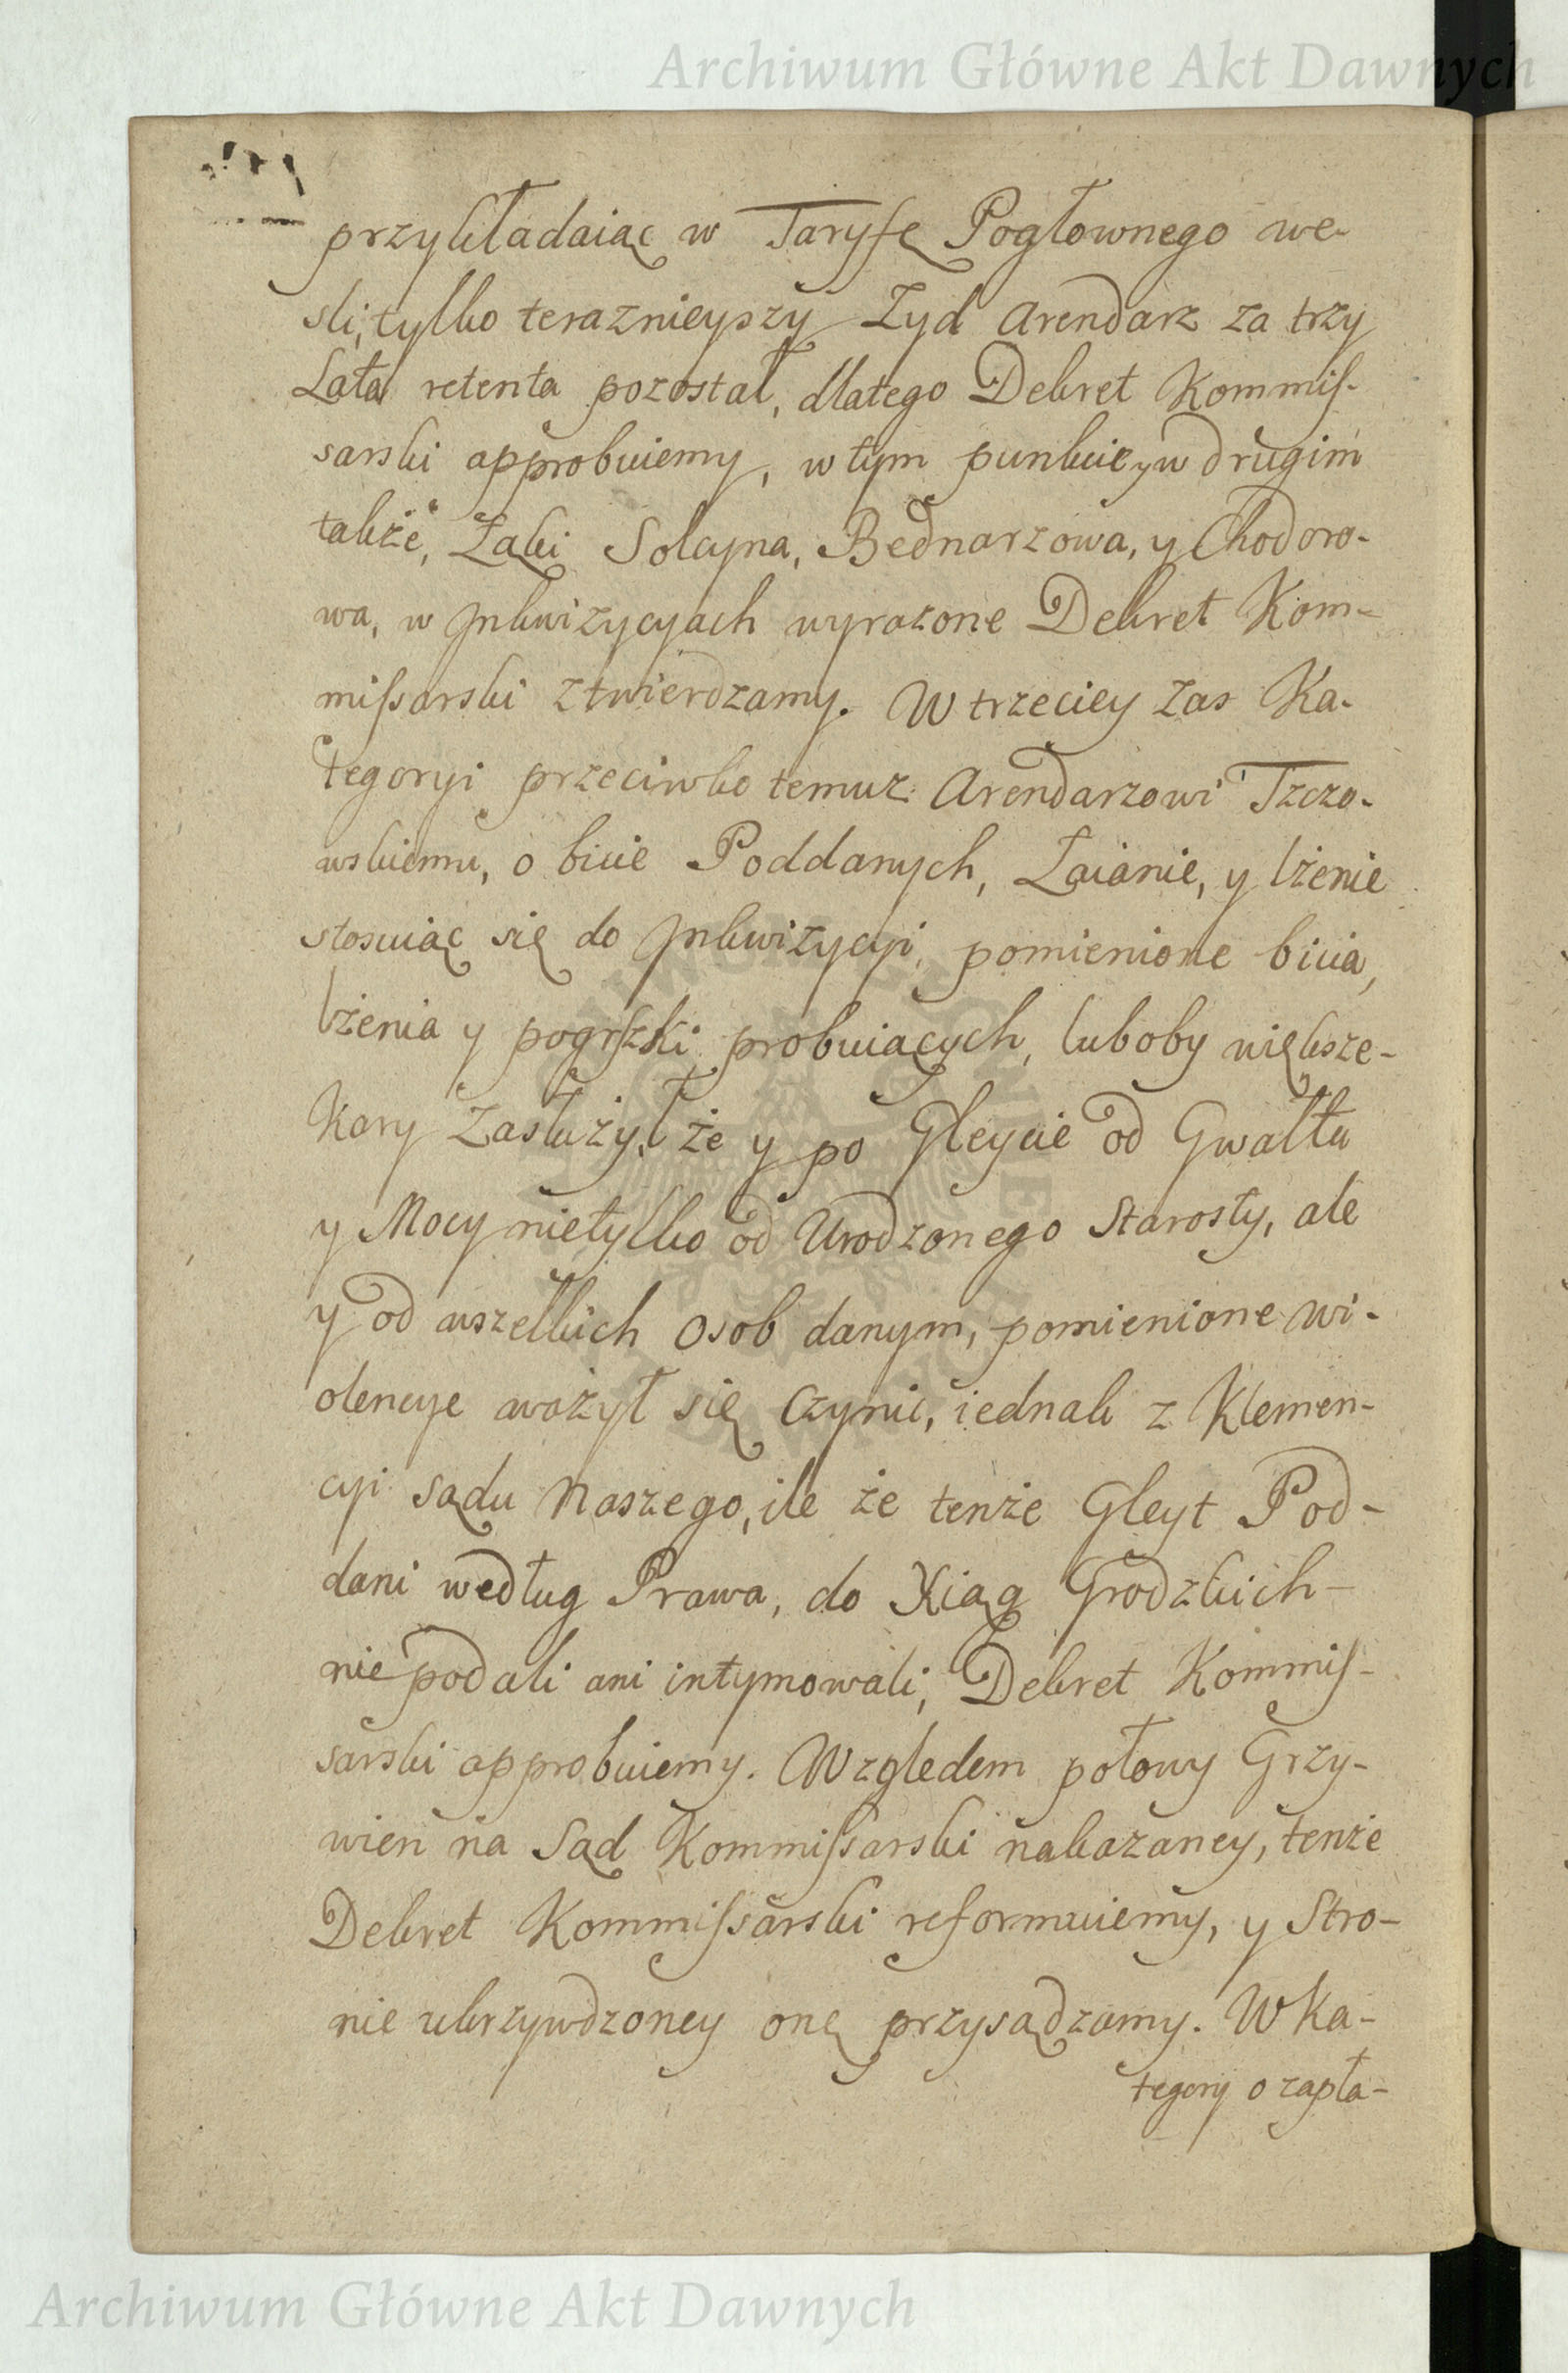 Archiwum Główne Akt Dawnych
przykładaiąc w Taryfę Pogłownego we-
sli, tylko teraznieyszy Zyd Arendarz za trzy
Lata retenta pozostał, dlatego Dekret Kommis-
sarski approbuiemy, w tym punkcie y w drugim
także, Łąki Solcyna, Bednarzowa, y Chodoro-
wa, w Jnkwizycyach wyrazone Dekret Kom-
missarski ztwierdzamy. W trzeciey zas Ka-
tegoryi przeciwko temuz Arendarzowi Tzczo-
wskiemu, o bicie Poddanych, Łaianie, y lżenie
stosuiąc się do Jnkwizycyi, pomienione bicia,
lżenia y pogrszki probuiących, luboby większe-
Kary zasłużył, że y po Gleycie od Gwałtu
y Mocy nietylko od Urodzonego Starosty, ale
y od wszelkich Osob danym, pomienione wi-
olencye ważył się Czynić, iednak z Klemen-
cyi sądu Naszego, ile że tenże Gleyt Pod-
dani według Prawa, do Xiąg Grodzkich-
nie podali ani intymowali, Dekret Kommis-
sarski approbuiemy. Względem połowy Grzy-
wien na Sąd Kommissarski nakazaney, tenże
Dekret Kommissarski reformuiemy, y Stro-
nie ukrzywdzoney onę przysądzamy. W Ka-
tegory o zapła-
Archiwum Główne Akt Dawnych